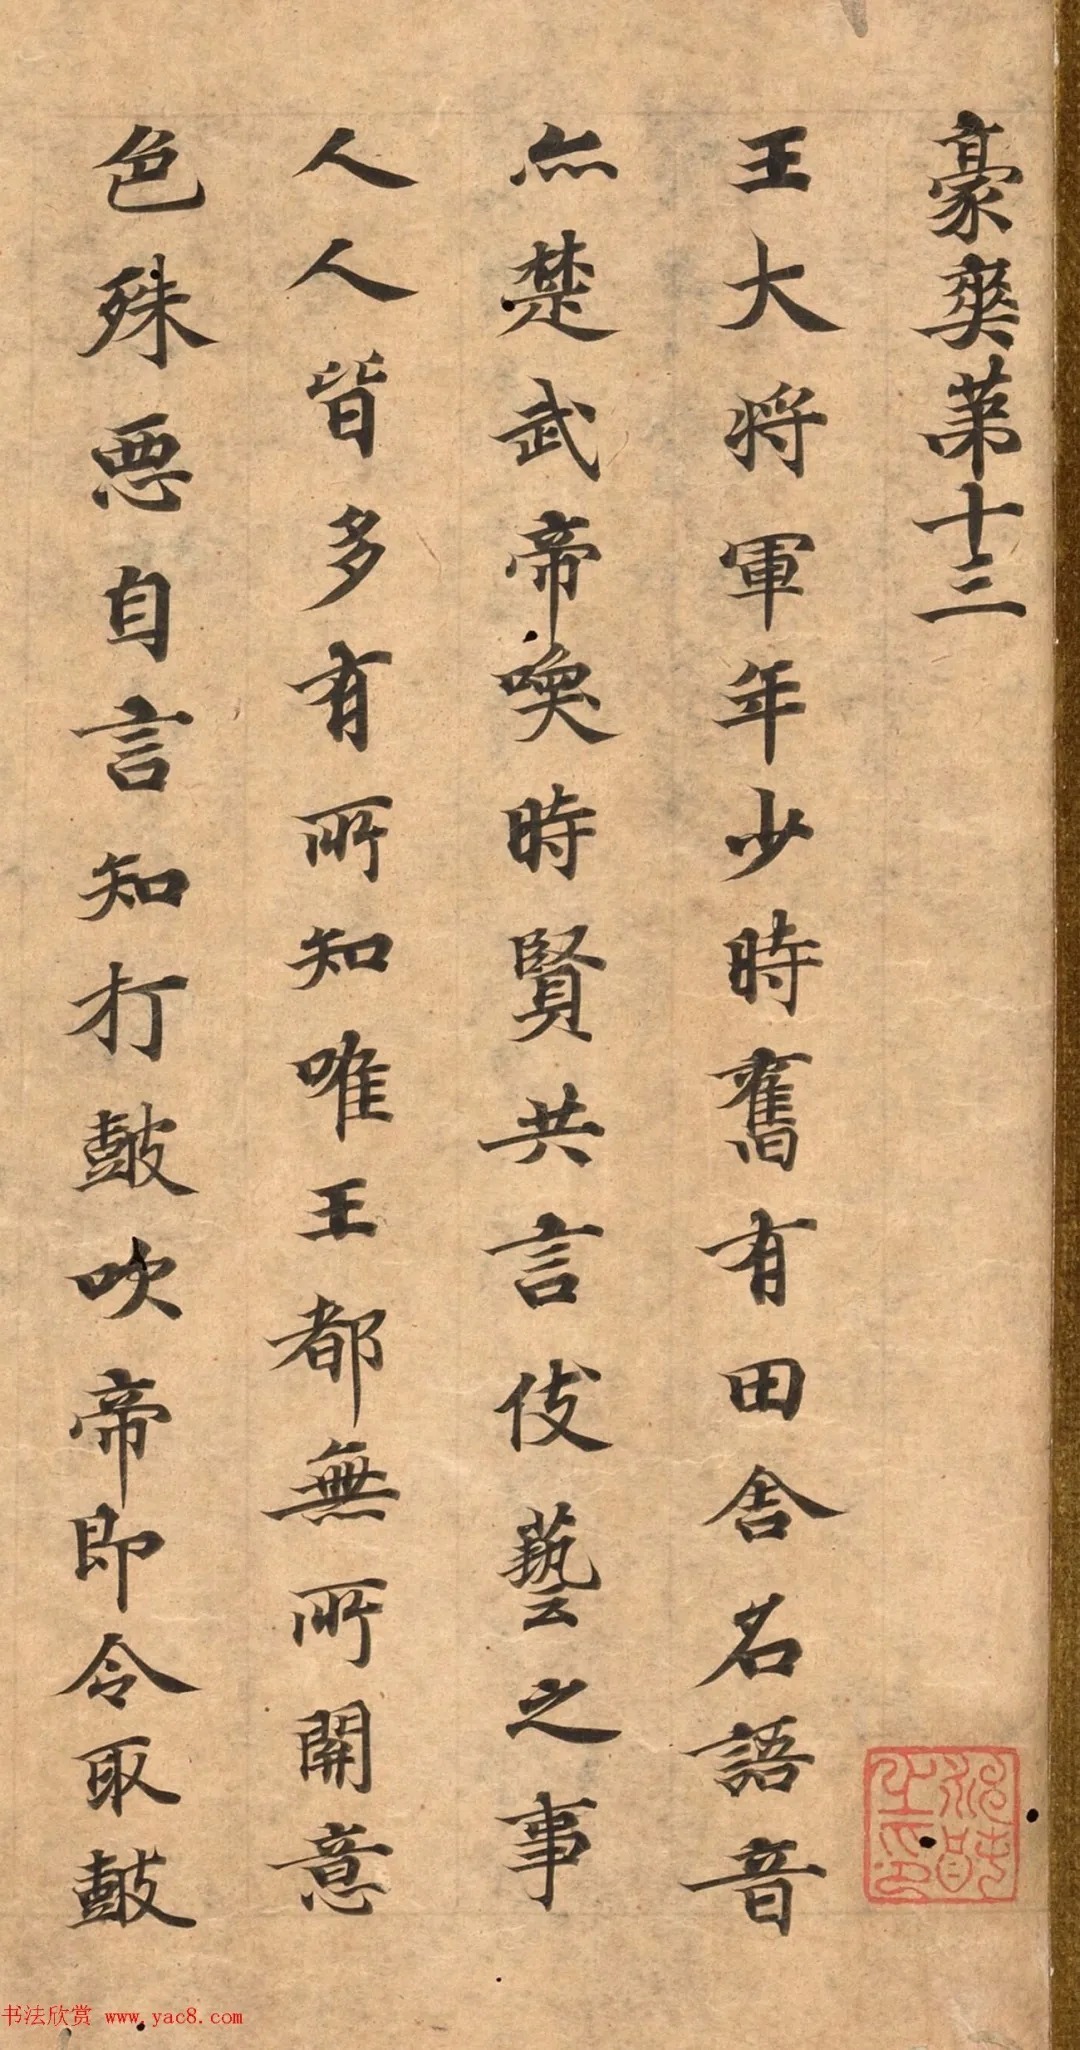 豪爽第十三
王大將軍年少時舊有田舍名語音
亦楚武帝喚時賢共言伎藝之事
人人皆多有所知唯王都無所關意
色殊惡自言知打鼓吹帝即令取鼓
书法欣赏 www.yac8.com